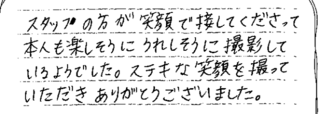 スタッフの方が笑顔で接してくださって
本人も楽しそうにうれしそうに撮影して
いるようでした。ステキな笑顔を撮って
いただきありがとうございました。